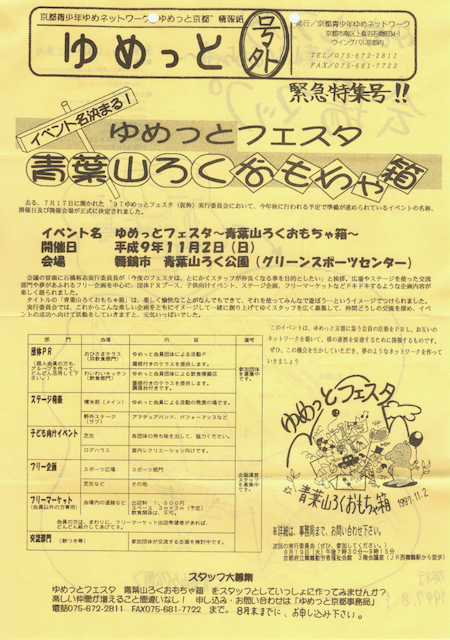 京都青少年ゆめネットワーク"ゆめっと京都"情報紙
ゆめっと
号外
発行/京都青少年ゆめネットワーク
ウイングパル京都内
TEL/075-672-2811
FAX/075-681-7722
緊急特集号!!
イベント名決まる!
ゆめっとフェスタ
青葉山ろくおもちゃ箱
去る、7月17日に開かれた'97ゆめっとフェスタ(仮称)実行委員会において、今年秋に行われる予定で準備が進められているイベントの名称、
開催日及び開催会場が正式に決定されました。
イベント名 ゆめっとフェスタ~青葉山ろくおもちゃ箱~
開催日 平成9年11月2日(日)
会場 舞鶴市 青葉山ろく公園(グリーンスポーツセンター)
会議の冒頭に石橋裕志実行委員長が「今度のフェスタは、とにかくスタッフが仲良くなる事を目的としたい」と挨拶。広場やステージを使った交流
部門や夢があふれるフリー企画を中心に、団体PRブース、子供向けイベント、ステージ企画、フリーマーケットなどドキドキするような企画内容が
楽しく語られました。
タイトルの「青葉山ろくおもちゃ箱」は、楽しく愉快なことがなんでもできて、それを使ってみんなで遊ぼう…というイメージでつけられました。
実行委員会では、これからこんな楽しい企画をともにイメージして一緒に創り上げてゆくスタッフを広く募集して、仲間どうしの交流を深め、イベン
トの成功へ向けて活動をしていきますと、元気いっぱいでした。
部門 会場 内容 備考
団体PR
(個人会員の方も、グループを作って、どんどん活用して下さい。)
おひさまテラス
(非飲食部門)
ゆめっと会員団体による活動PR
露店付きのテラスを提供します。
わいわいキッチン
(飲食部門)
ゆめっと会員団体による飲食模擬店
露店付きのテラスを提供します。
参加団体を募集中です。
ステージ発表
噴水前(メイン)
ゆめっと会員による活動の発表の場です。
野外ステージ
(サブ)
アマチュアバンド、パフォーマンスなど
子ども向けイベント
芝生
各団体の持ち味を出して、協力ください。
ログハウス
室内レクリエーション向けです。
フリー企画
スポーツ広場
スポーツ部門
芝生など
その他
企画運営スタッフを募集中です。
フリーマーケット
(会員以外の方専用)
会場内の道路など
出店料 1,500円
スペース 3m×3m(予定)
飲食関係は、不可。
会員の方は、まわりに、フリーマーケット出店希望者があれば、
どんどん紹介してあげて下さい。
交流部門
(野っ原等)
参加団体が交流する企画を検討中です。
このイベントは、ゆめっと京都に集う会員の活動をPRし、お互いの
ネットワークを築いて、横の連携を促進するために開催するものです。
ぜひ、この機会を生かしていただき、夢のようなネットワークを作って
いきましょう
ゆめっとフェスタ
青葉山ろくおもちゃ箱
1997.11.2
※詳細は、事務局まで、お問い合わせ下さい。
次回の実行委員会(ぜひ、参加してください。)
8月19日(火)午後7時30分~9時15分
京都府立舞鶴勤労者福祉会館 3階会議室(JR西舞鶴駅から徒歩)
スタッフ大募集
ゆめっとフェスタ 青葉山ろくおもちゃ箱 をスタッフとしていっしょに作ってみませんか?
楽しい仲間が増えること間違いなし! 申し込み・お問い合わせは「ゆめっと京都事務局」
電話075-672-2811 FAX075-681-7722 まで。 8月末までに、お申し込み下さい。